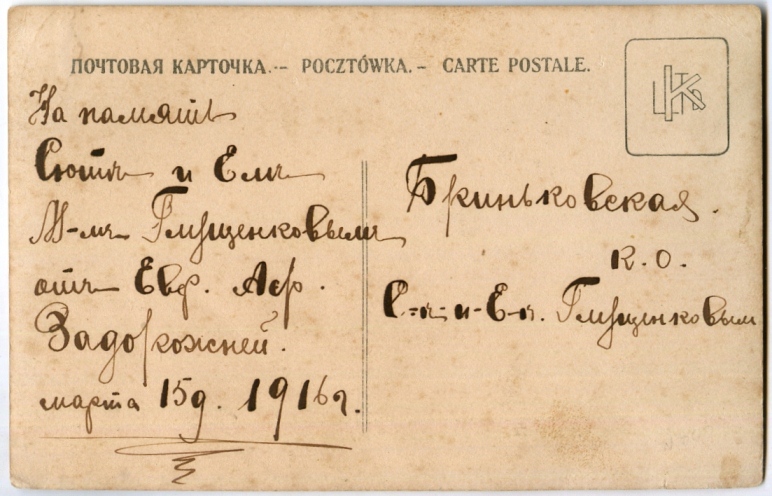 ПОЧТОВАЯ КАРТОЧКА.-- POCZTÓWKA.- CARTE POSTALE.
На память
и
Глущенковымъ
отъ Евф. Аф.
Задорожней.
марта 15д. 1916г.
Бриньковская.
К. О.
Глущенковым